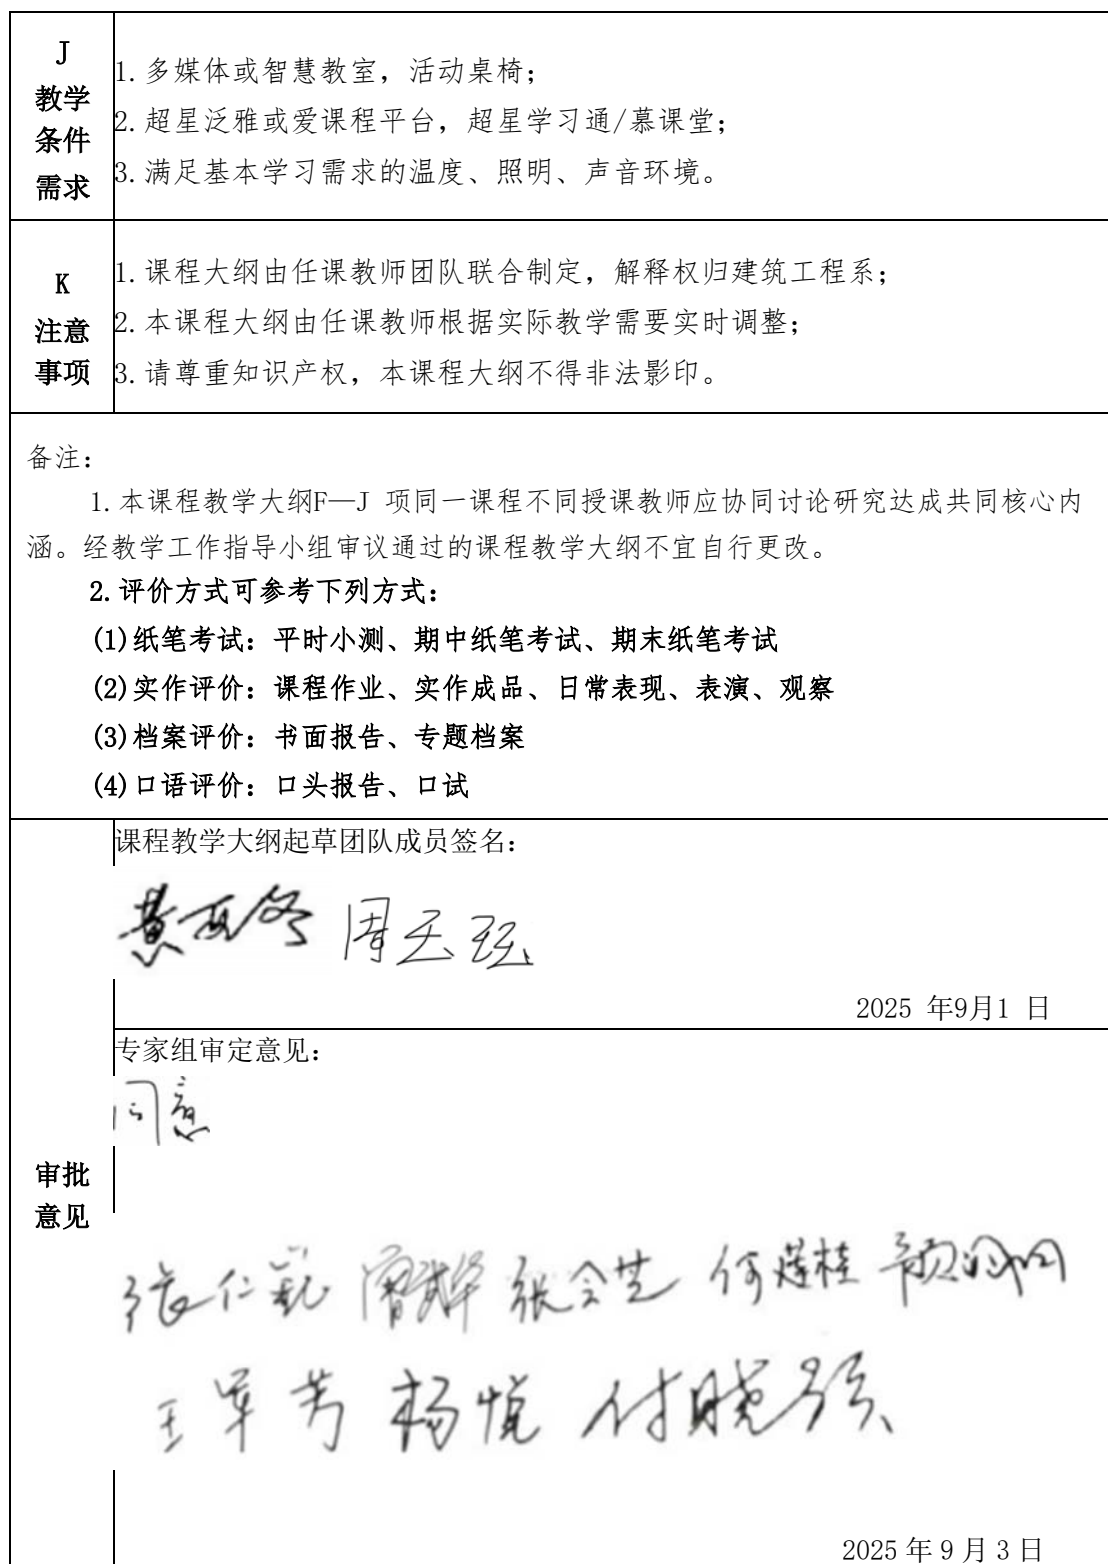 J
教学
条件
需求
1.多媒体或智慧教室，活动桌椅；
2.超星泛雅或爱课程平台，超星学习通/慕课堂；
3.满足基本学习需求的温度、照明、声音环境。
K
注意
事项
1.课程大纲由任课教师团队联合制定，解释权归建筑工程系；
2.本课程大纲由任课教师根据实际教学需要实时调整；
3.请尊重知识产权，本课程大纲不得非法影印。
备注：
1.本课程教学大纲F—J 项同一课程不同授课教师应协同讨论研究达成共同核心内
涵。经教学工作指导小组审议通过的课程教学大纲不宜自行更改。
2.评价方式可参考下列方式：
(1)纸笔考试：平时小测、期中纸笔考试、期末纸笔考试
(2)实作评价：课程作业、实作成品、日常表现、表演、观察
(3)档案评价：书面报告、专题档案
(4)口语评价：口头报告、口试
审批
意见
课程教学大纲起草团队成员签名：
2025 年9月1 日
专家组审定意见：
同意
张仁 张会芝 何莲桂
王军芳 杨悦 付晓强
2025 年 9 月 3 日